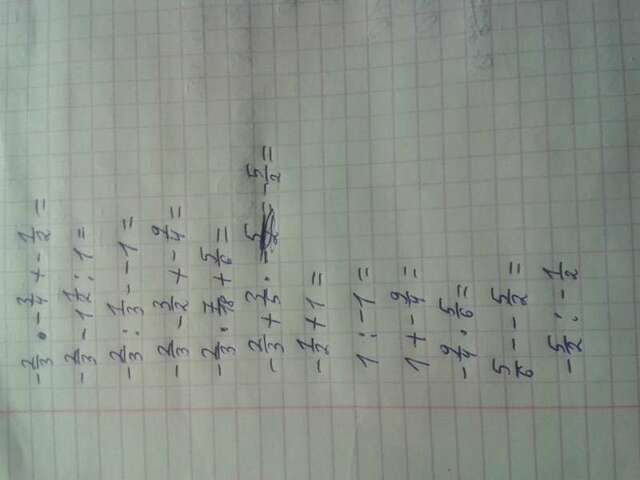 -2/3 · -3/4 + -1/2 =
-2/3 - 1 1/2 : 1 =
-2/3 : 1/3 - -1 =
-2/3 - 3/2 + -9/4 =
-2/3 · 7/18 + 5/6 =
-2/3 + 2/5 · -5/2 =
-1/2 + 1 =
1 : -1 =
1 + -9/4 =
-9/4 · 5/6 =
5/6 - -5/2 =
-5/2 : -1/2